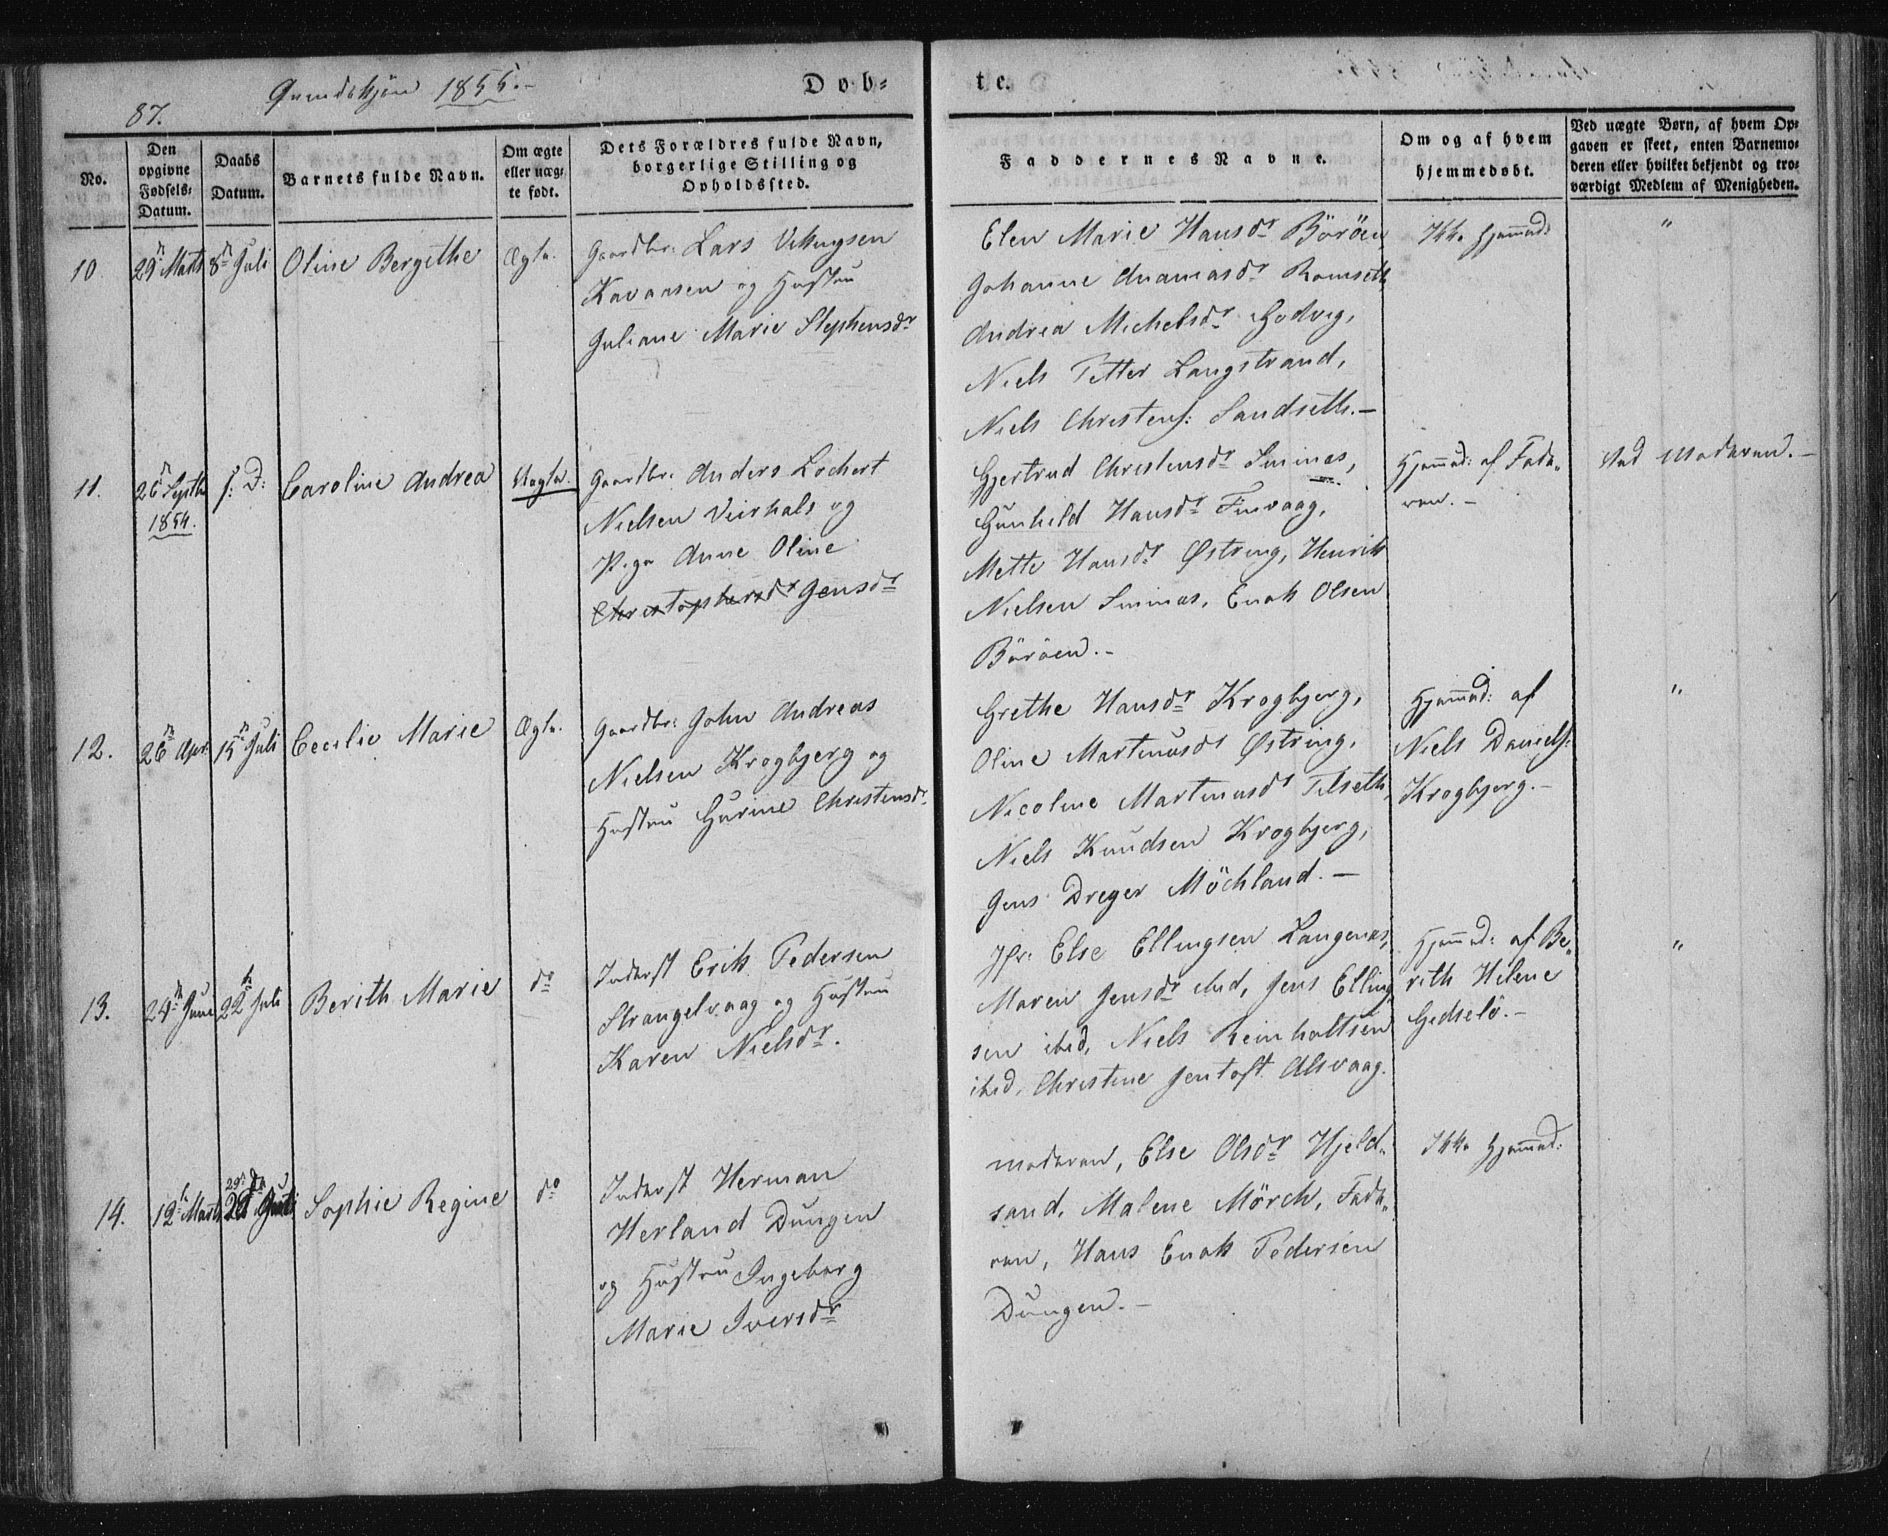 87.
Qvindekjøn 1855.-
Døb=
te.
No.
Den
opgivne
Fødsels=
Datum.
Daabs
Datum.
Barnets fulde Navn.
Om ægte
eller uæg=
te født.
Dets Forældres fulde Navn,
borgerlige Stilling og
Opholdssted.
Faddernes Navne.
Om og af hvem
hjemmedøbt.
Ved uægte Børn, af hvem Op=
gaven er skeet, enten Barnemo=
deren eller hvilket bekjendt og tro=
værdigt Medlem af Menigheden.
10.
29n Marts
8n Juli
Oline Bergithe
Ægte.
Gaardbr: Lars
og Hustru
Juliane Marie Stephensdr
Elen Marie Hansdr Böröen
Johanne Romseth
Andrea Michelsdr Godvig,
Niels Petter Langstrand,
Niels Christens: Sandseth.-
Ikke hjemmed:
"
11.
26n Septbr
1854.
s: D:
Caroline Andrea
Uægte.
Gaardbr: Anders Lochert
Nielsen Veirhals og
Pige Anne Oline
Christophersdr Jensdr
Gjertrud Christensdr Sminæs,
Gunhild Hansdr Finvaag,
Mette Hansdr Østring, Henrik
Nielsen Sminæs, Enok Olsen
Böröen.-
Hjemmed: af Fade=
ren.-
Ved Moderen.-
12.
26n Apr.
15n Juli
Cecilie Marie
Ægte.
Gaardbr: John Andreas
Nielsen Krogbjerg og
Hustru Gurine Christensdr
Grethe Hansdr Krogbjerg,
Oline Martinusdr Østring,
Nicoline Martinusdr Tilseth,
Niels Knudsen Krogbjerg,
Jens Dreyer Möchland.-
Hjemmed: af
Niels Daniels:
Krogbjerg.-
"
13.
24n Juni
22n Juli
Berith Marie
do
Inderst Erik Pedersen
Strangelvaag og Hustru
Karen Nielsdr.
Jfr: Else Ellingsen Langenæs,
Maren Jensdr ibid, Jens Elling
sen ibid, Niels Reinholtsen
ibid, Christine Jentoft Alsvaag.
Hjemmed: af Be=
rith Helene
Gidselö.-
"
14.
12n Marts
29de
Juli
Sophie Regine
do
Inderst Herman
Herland Dungen
og Hustru Ingeborg
Marie Iversdr
Moderen, Else Olsdr Hjeld=
sand, Malene Mörch, Fade=
ren, Hans Enok Pedersen
Dungen.-
Ikke hjemmed: